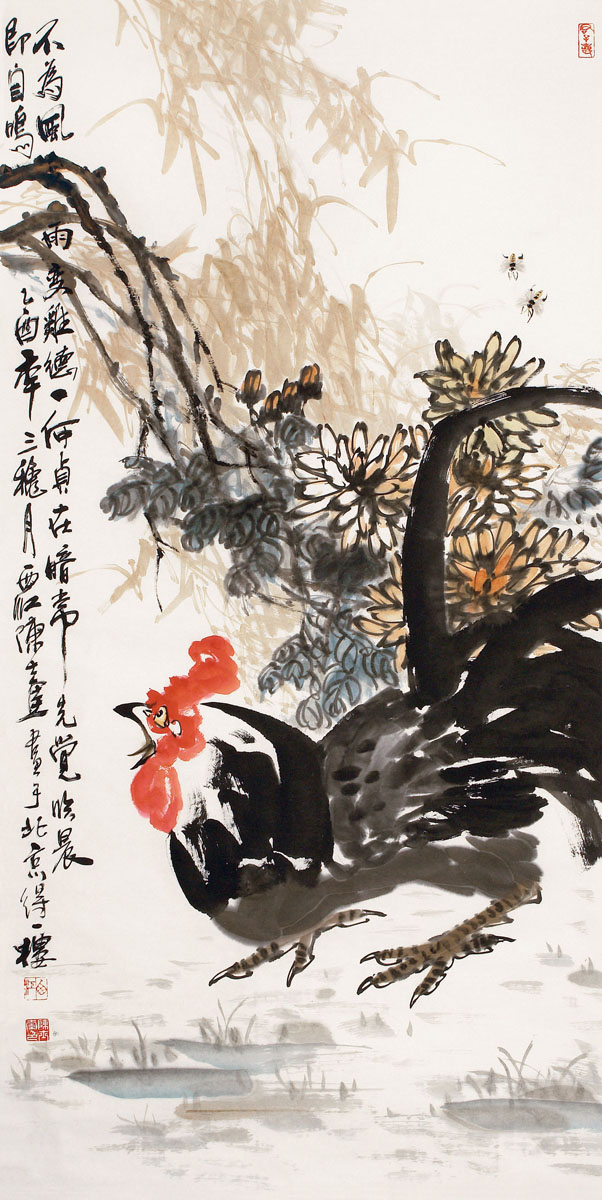 不為風雨變雞德一何貞在暗常先覺臨晨
即自鳴 乙酉年三穐月 西江陳 畫于北京得一樓